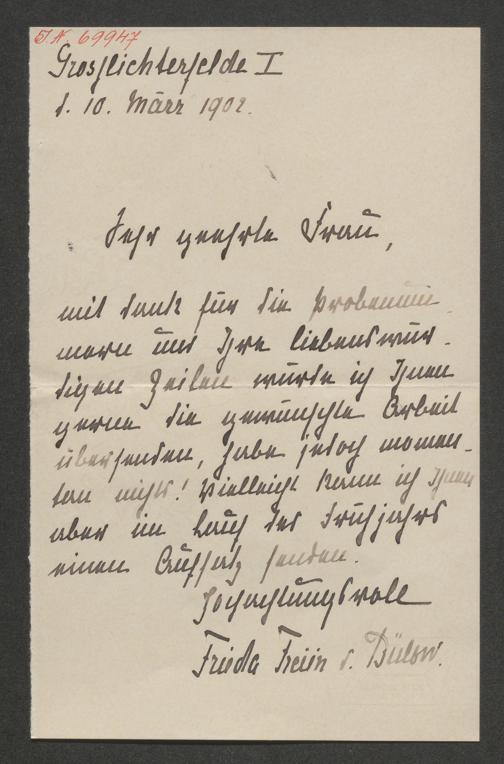 I.N. 69947
Grosslichterfelde I
d. 10. März 1902.
Sehr geehrte Frau,
mit Dank für die Probenum-
mern und Ihre liebenswür-
digen Zeilen würde ich Ihnen
gerne die gewünschte Arbeit
übersenden, habe jedoch momen-
tan nichts! Vielleicht kann ich Ihnen
aber im Lauf des Frühjahrs
einen Aufsatz senden.
Hochachtungsvoll
Frieda Freiin v. Bülow.